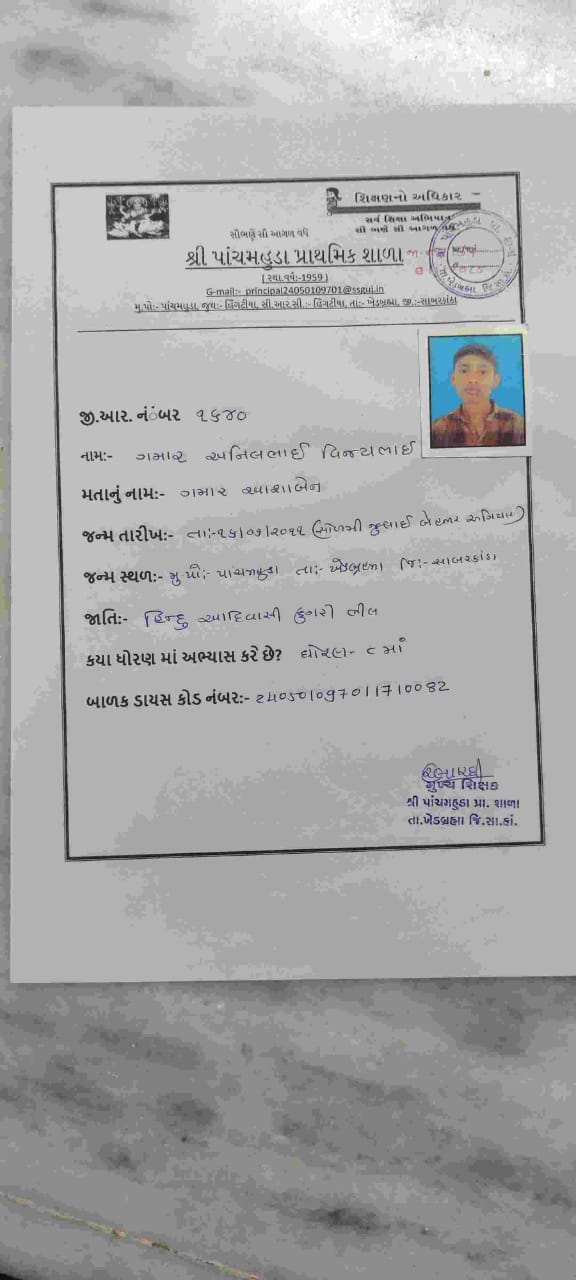 શિક્ષણનો અધિકાર
સર્વ શિક્ષા અભિયાન
સૌ ભણે સૌ આગળ વધે
સૌ ભણે સૌ આગળ વધે
શ્રી પાંચમહુડા પ્રાથમિક શાળા
(સ્થા.વર્ષ:-1959)
G-mail:- principal24050109701@ssguj.in
મુ.પો:- પાંચમહુડા, જુથ:- હિંગટીયા, સી.આર.સી.:- હિંગટીયા, તા:- ખેડબ્રહ્મા, જી.:-સાબરકાંઠા
2025
જી.આર. નંબર ૧૬૪૦
નામ:- ગમાર અનિલભાઈ વિજયભાઈ
મતાનું નામ:- ગમાર આશાબેન
જન્મ તારીખ:- તા:-૧૬/૦૭/૨૦૧૧ (સોળમી જુલાઈ બે હજાર અગિયાર)
જન્મ સ્થળ:- મુ.પો:- પાંચમહુડા તા:- ખેડબ્રહ્મા જિ:- સાબરકાંઠા
જાતિ:- હિન્દુ આદિવાસી ડુંગરી ભીલ
કયા ધોરણ માં અભ્યાસ કરે છે? ધોરણ- ૮ માં
બાળક ડાયસ કોડ નંબર:- 240501097011710082
મુખ્ય શિક્ષક
શ્રી પાંચમહુડા પ્રા. શાળા
તા.ખેડબ્રહ્મા જિ.સા.કાં.